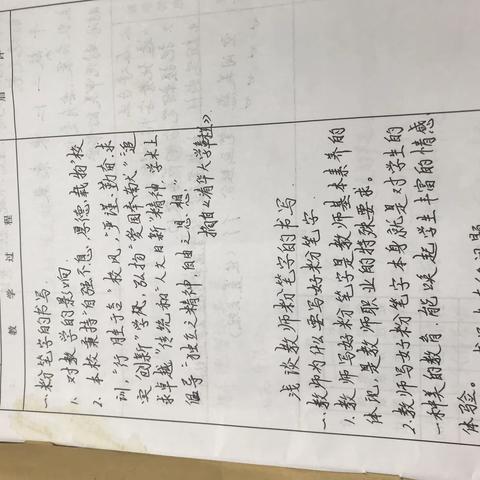 教学过程
一.粉笔字的书写.
1. 对教学的影响.
2. 本校秉持"自强不息,厚德载物校
训,"行胜于言"校风,"严谨,勤奋,求
实创新"学风,弘扬"爱国奉献""追
求卓越"传统和"人文日新"精神.学术上
倡导"独立之精神,自由之思想."
摘自《清华大学章程》.
浅谈教师粉笔字的书写
一.教师为什么要写好粉笔字.
1.教师写好粉笔字是教师基本素养的
体现,是教师职业的特殊要求。
2.教师写好粉笔字本身就是对学生的
一种美的教育.能唤起学生丰富的情感
体验。